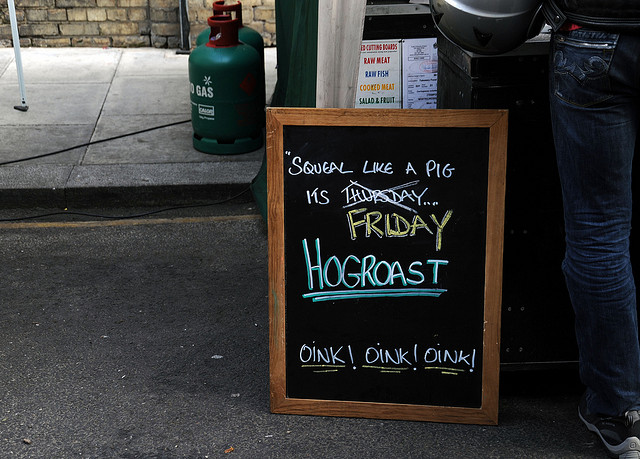 GAS
ED CUTTING BOARDS
RAW MEAT
RAW FISH
COOKED MEAT
SALAD & FRUIT
"SQUEAL LIKE A PIG
IT'S THURSDAY...
FRIDAY
HOGROAST
OINK! OINK! OINK!